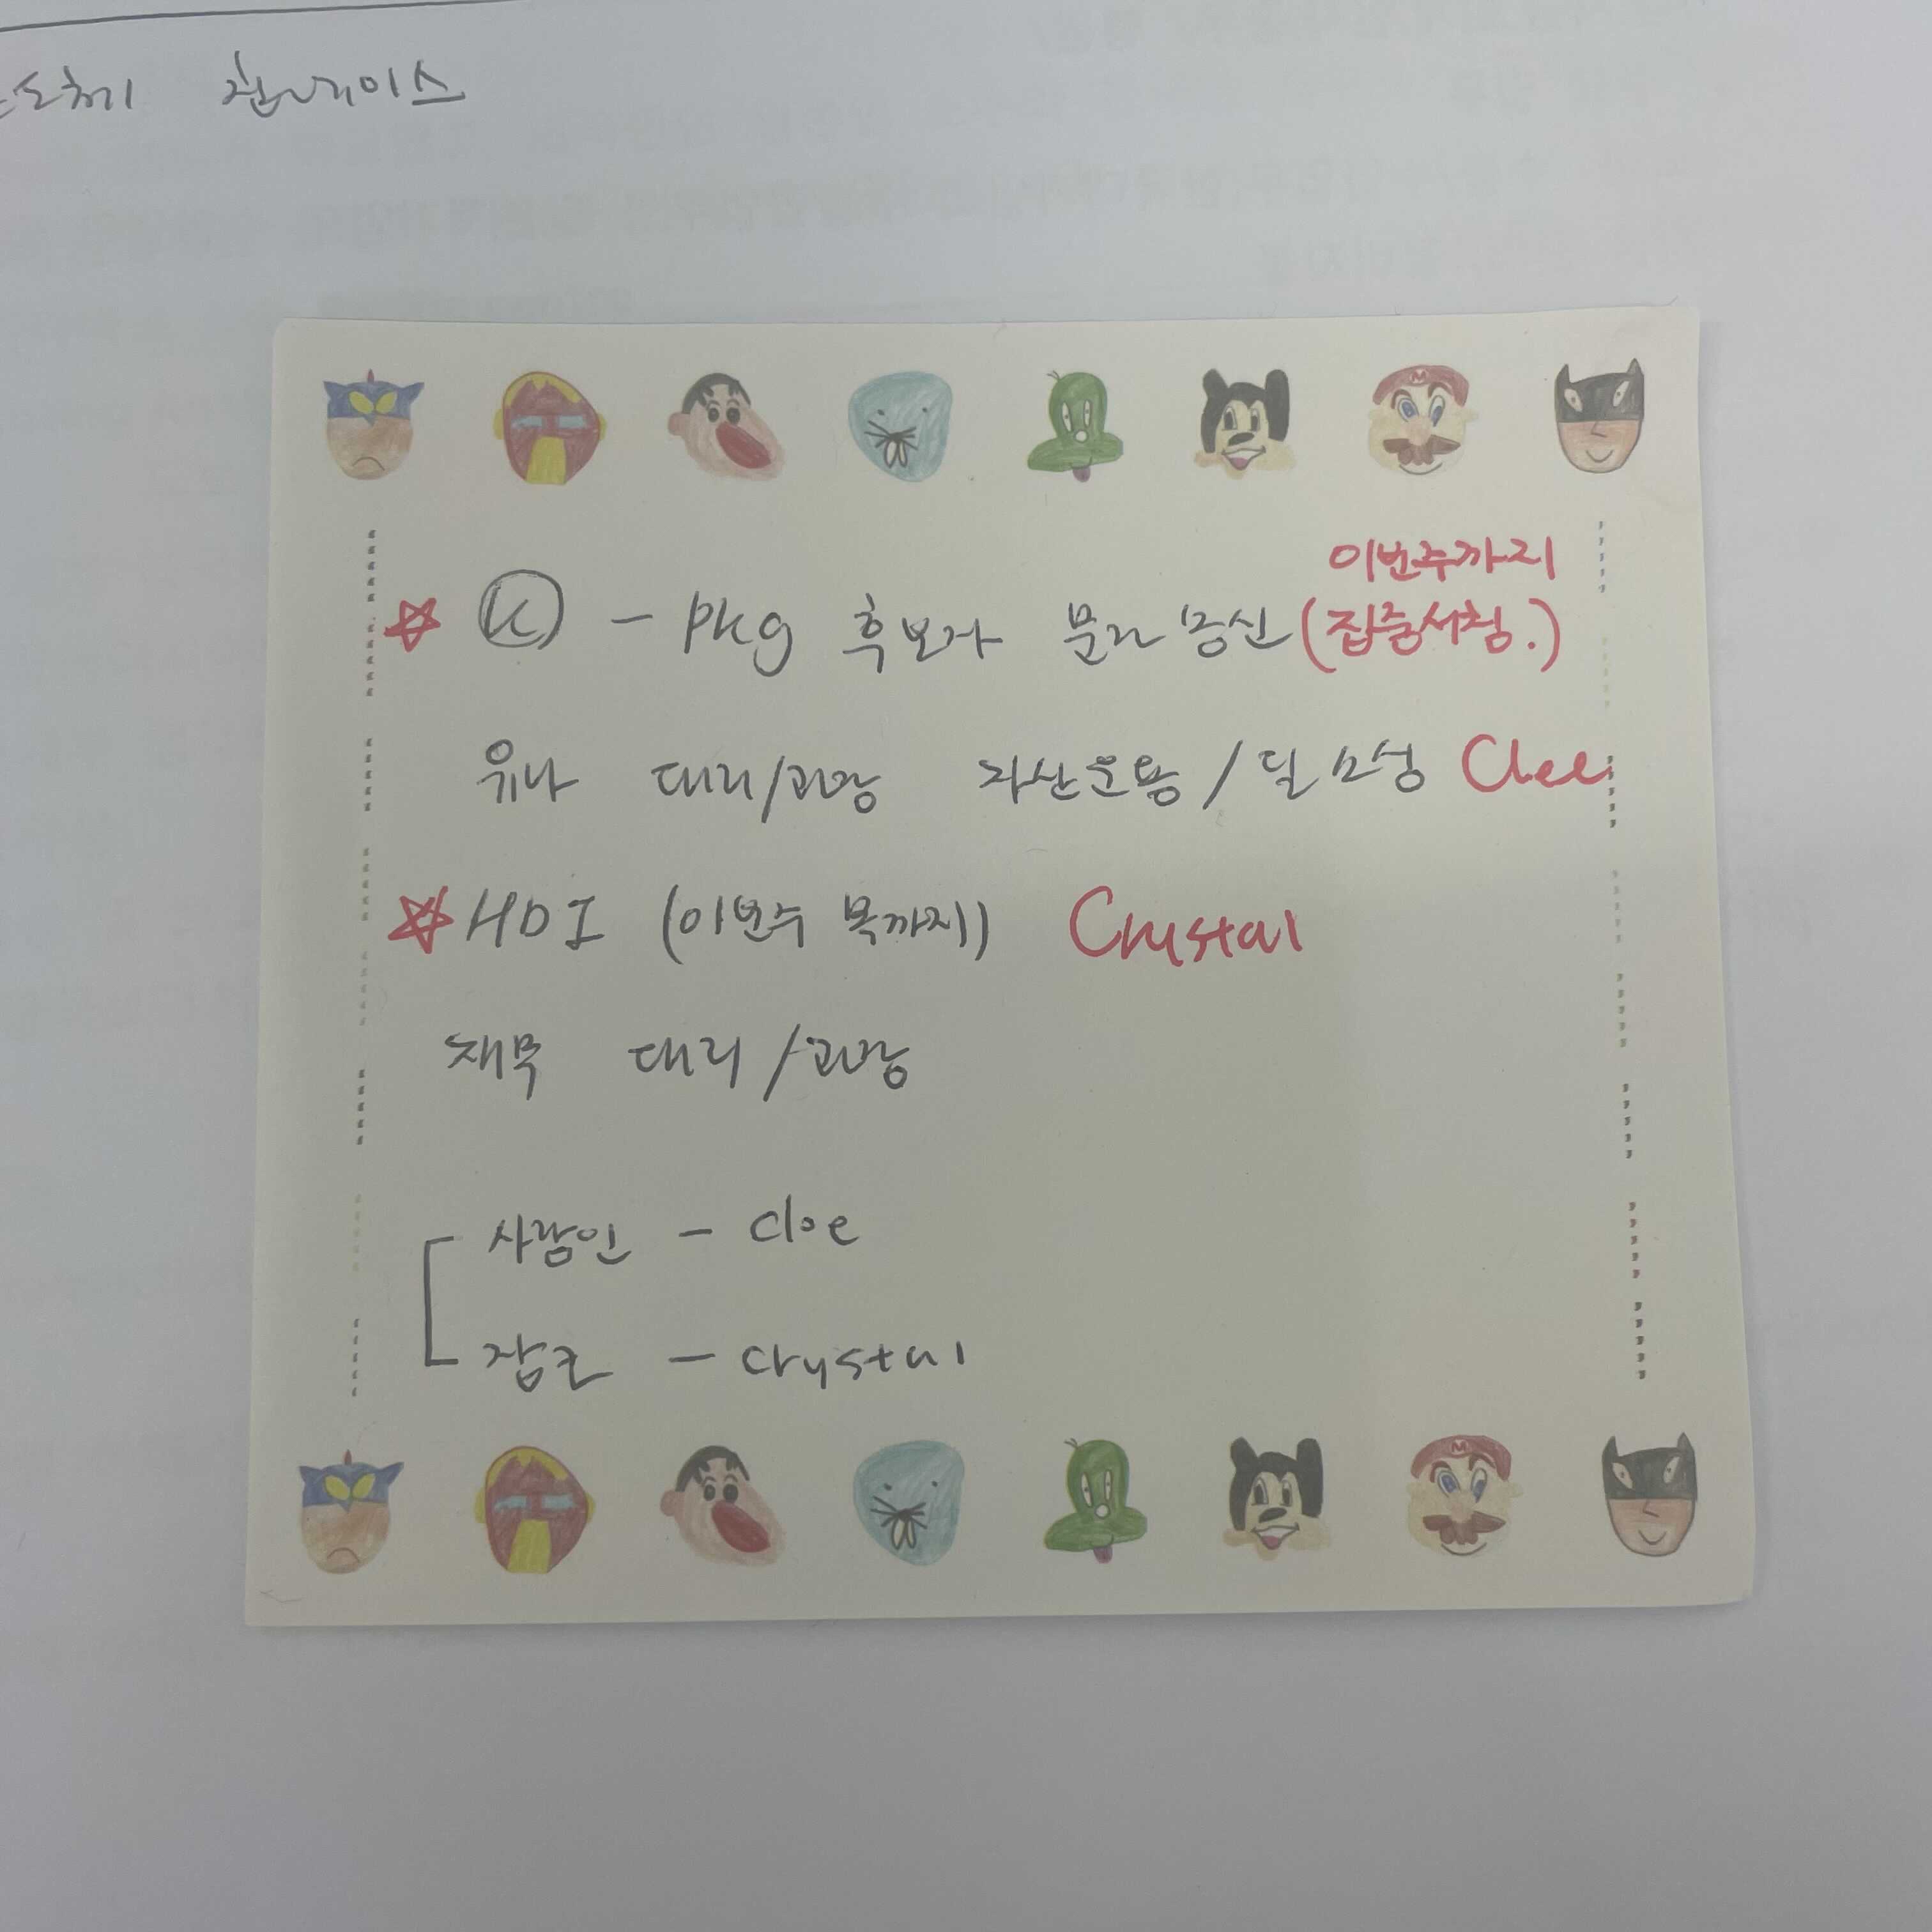 이번주까지
Ⓚ - pkg 후보자 문자 발신 (집중서칭.)
유나 대리/과장 자산운용/딜소싱 Cloe
HDI (이번주 목까지) Crystal
재무 대리/과장
사람인 - cloe
잡코 - crystal